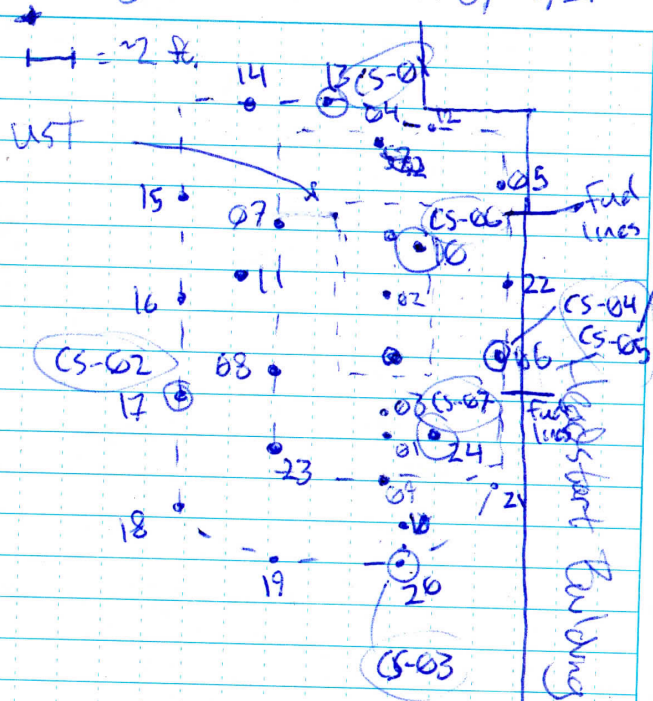 = ~2 ft.
14
13
CS-01
04
12
UST
05
15
07
CS-06
Fuel
lines
10
11
22
16
02
CS-04/
CS-05
CS-02
08
06
17
03
CS-07
Fuel
lines
01
24
23
21
18
19
20
CS-03
Headstart Building